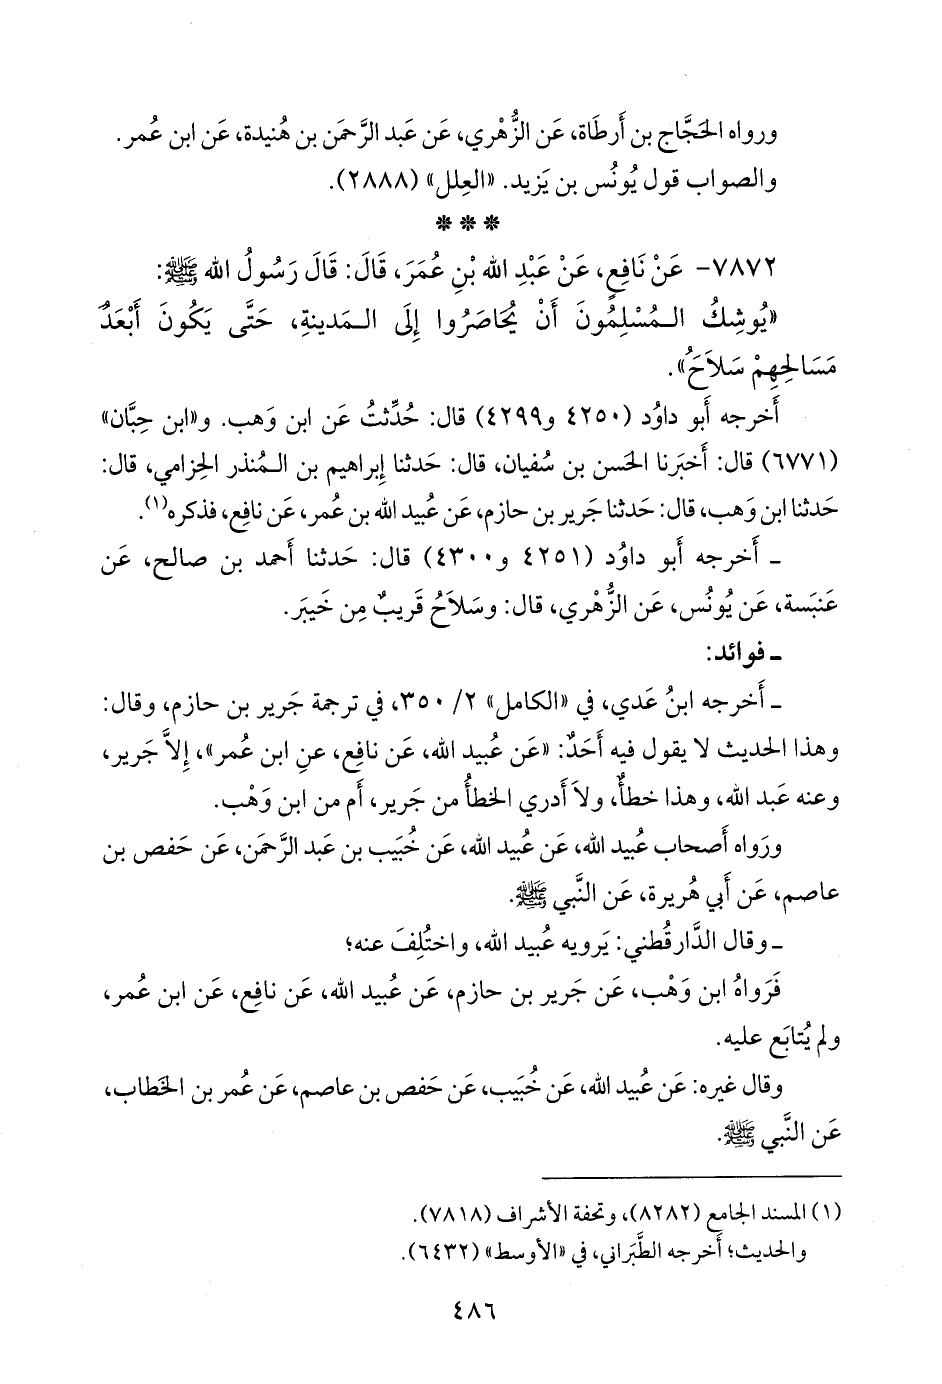 ورواه الحَجَّاج بن أَرطَاة، عَن الزُّهْري، عَن عَبد الرَّحمَن بن هُنيدة، عَن ابن عُمر.
والصواب قول يُونُس بن يَزيد. «العِلل» (٢٨٨٨).
* * *
٧٨٧٢- عَنْ نَافِعٍ، عَنْ عَبْدِ الله بْنِ عُمَرَ، قَالَ: قَالَ رَسُولُ الله ﷺ:
«يُوشِكُ الـمُسْلِمُونَ أَنْ يُحَاصَرُوا إِلَى الـمَدينةِ، حَتَّى يَكُونَ أَبْعَدُ
مَسَالِحِهِمْ سَلاَحُ».
أَخرجه أَبو داوُد (٤٢٥٠ و٤٢٩٩) قال: حُدِّثتُ عَن ابن وَهب. و«ابن حِبَّان»
(٦٧٧١) قال: أَخبَرنا الحَسن بن سُفيان، قال: حَدثنا إِبراهيم بن الـمُنذر الحِزامي، قال:
حَدثنا ابن وَهب، قال: حَدثنا جَرير بن حازم، عَن عُبيد الله بن عُمر، عَن نافِع، فذكره(١).
ـ أَخرجه أَبو داوُد (٤٢٥١ و٤٣٠٠) قال: حَدثنا أَحمد بن صالح، عَن
عَنبَسة، عَن يُونُس، عَن الزُّهْري، قال: وسَلاَحُ قَريبٌ مِن خَيبَر.
ـ فوائد:
ـ أَخرجه ابنُ عَدي، في «الكامل» ٢/ ٣٥٠، في ترجمة جَرير بن حازم، وقال:
وهذا الحديث لا يقول فيه أَحَدٌ: «عَن عُبيد الله، عَن نافِع، عنِ ابن عُمر»، إِلاَّ جَرير،
وعنه عَبد الله، وهذا خطأٌ، ولاَ أَدري الخطأُ من جَرير، أَم من ابن وَهْب.
ورَواه أَصحاب عُبيد الله، عَن عُبيد الله، عَن خُبَيب بن عَبد الرَّحمَن، عَن حَفص بن
عاصم، عَن أَبي هُريرة، عَن النَّبي ﷺ.
ـ وقال الدَّارقُطني: يَرويه عُبيد الله، واختُلِفَ عنه؛
فَرَواهُ ابن وَهْب، عَن جَرير بن حازم، عَن عُبيد الله، عَن نافِع، عَن ابن عُمر،
ولم يُتابَع عليه.
وقال غيره: عَن عُبيد الله، عَن خُبَيب، عَن حَفص بن عاصم، عَن عُمر بن الخَطاب،
عَن النَّبي ﷺ.
(١) المسند الجامع (٨٢٨٢)، وتحفة الأشراف (٧٨١٨).
والحديث؛ أَخرجه الطَّبَراني، في «الأوسط» (٦٤٣٢).
٤٨٦